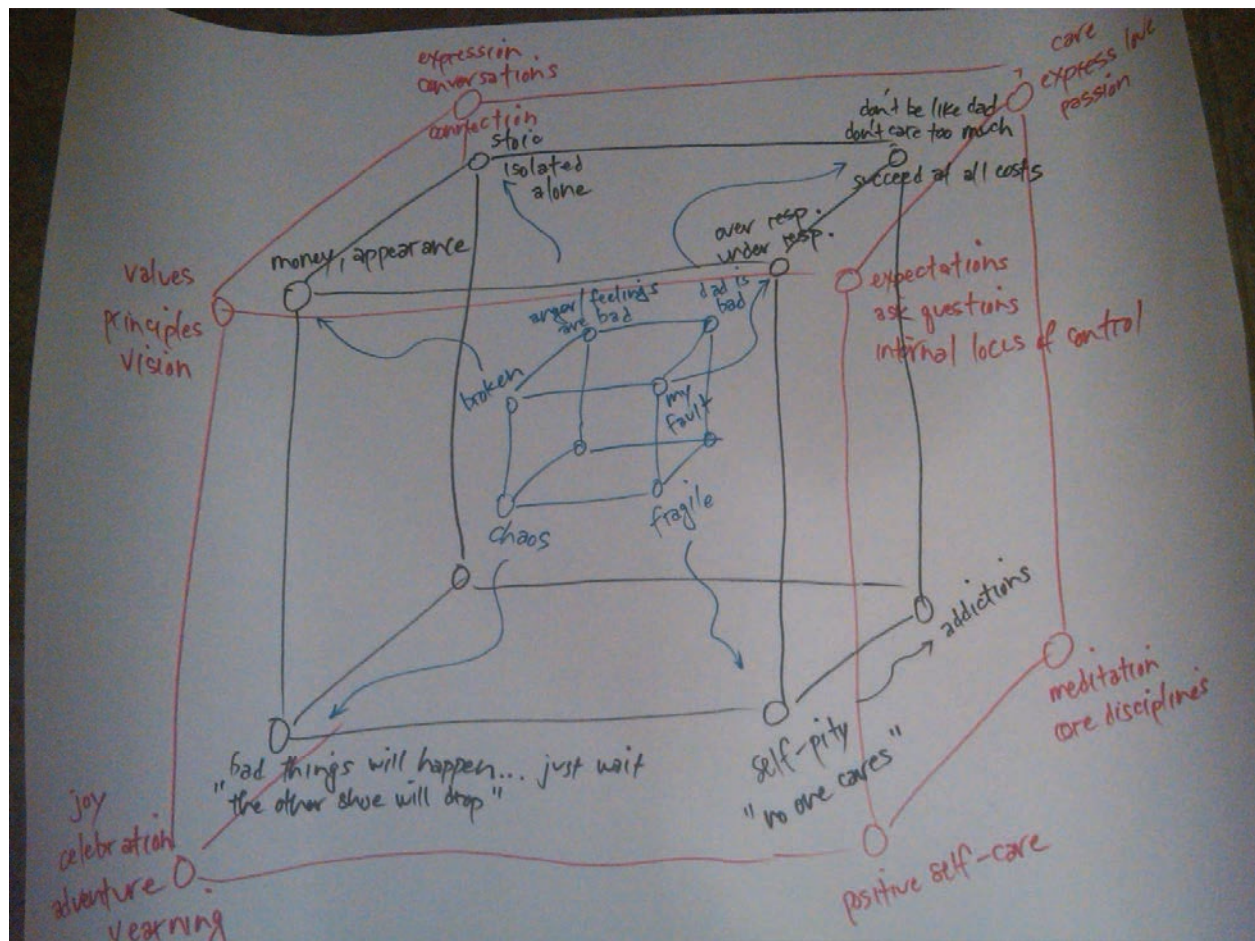 expression
conversations
connection
care
express love
passion
stoic
isolated
alone
don't be like dad
don't care too much
succeed at all costs
values
principles
vision
money, appearance
over resp.
under resp.
expectations
ask questions
internal locus of control
anger/feelings
are bad
dad is
bad
broken
my
fault
chaos
fragile
addictions
meditation
core disciplines
"bad things will happen... just wait
the other shoe will drop"
self-pity
"no one cares"
joy
celebration
adventure
yearning
positive self-care